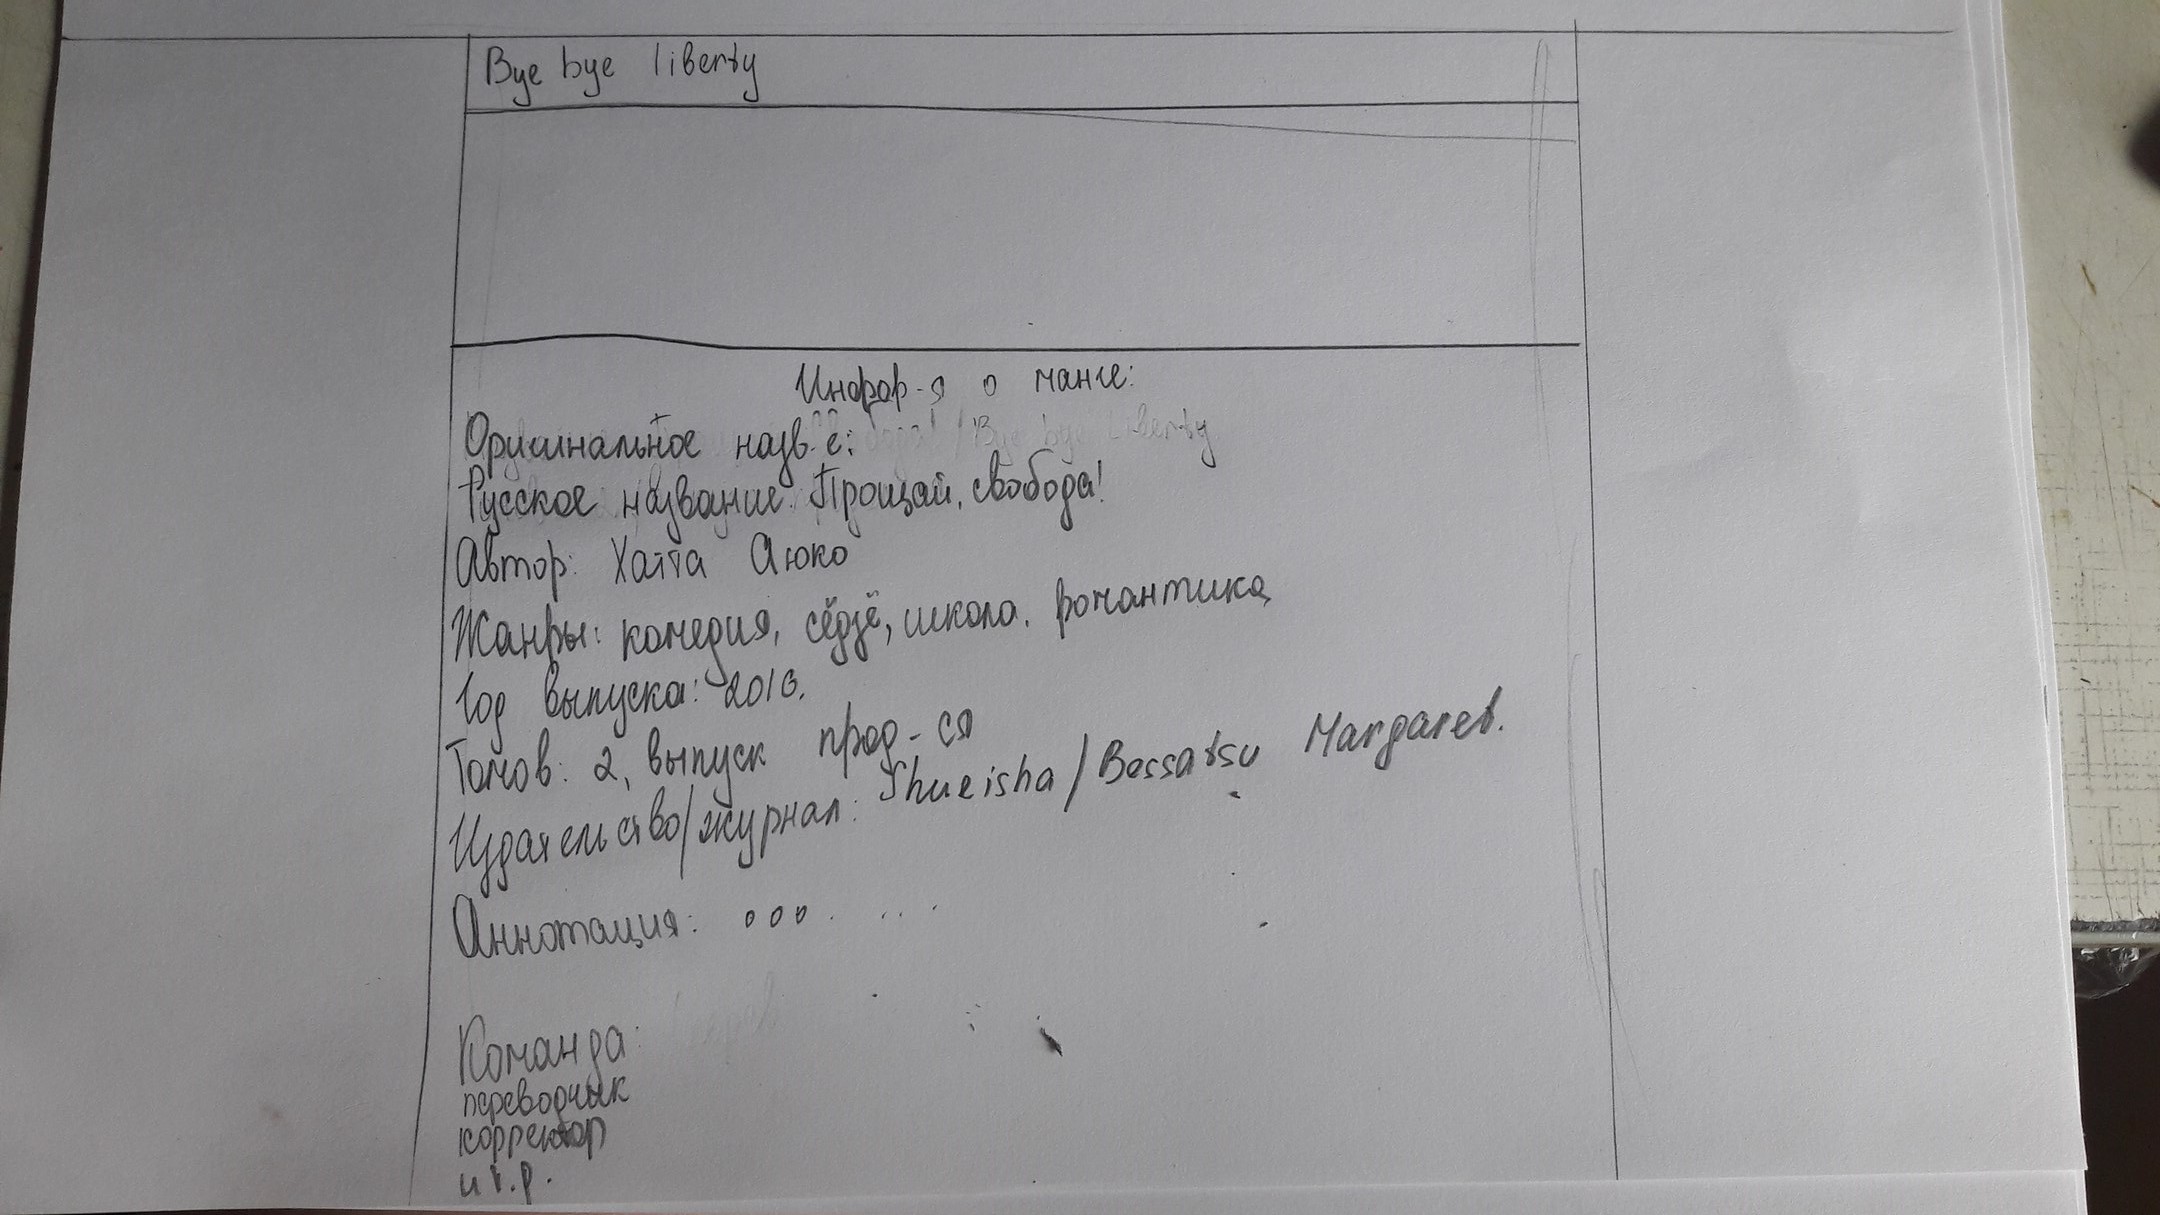 Bye bye liberty
Инфор-я о манге:
Оригинальное назв-е: / Bye bye Liberty
Русское название: Прощай, свобода!
Автор: Хатта Аюко
Жанры: комедия, сёдзё, школа, романтика
Год выпуска: 2016.
Томов: 2, выпуск прод-ся
Издательство/журнал: Shueisha/Bessatsu Margaret.
Аннотация: ооо. ...
Команда:
переводчык
корректор
и т.р.